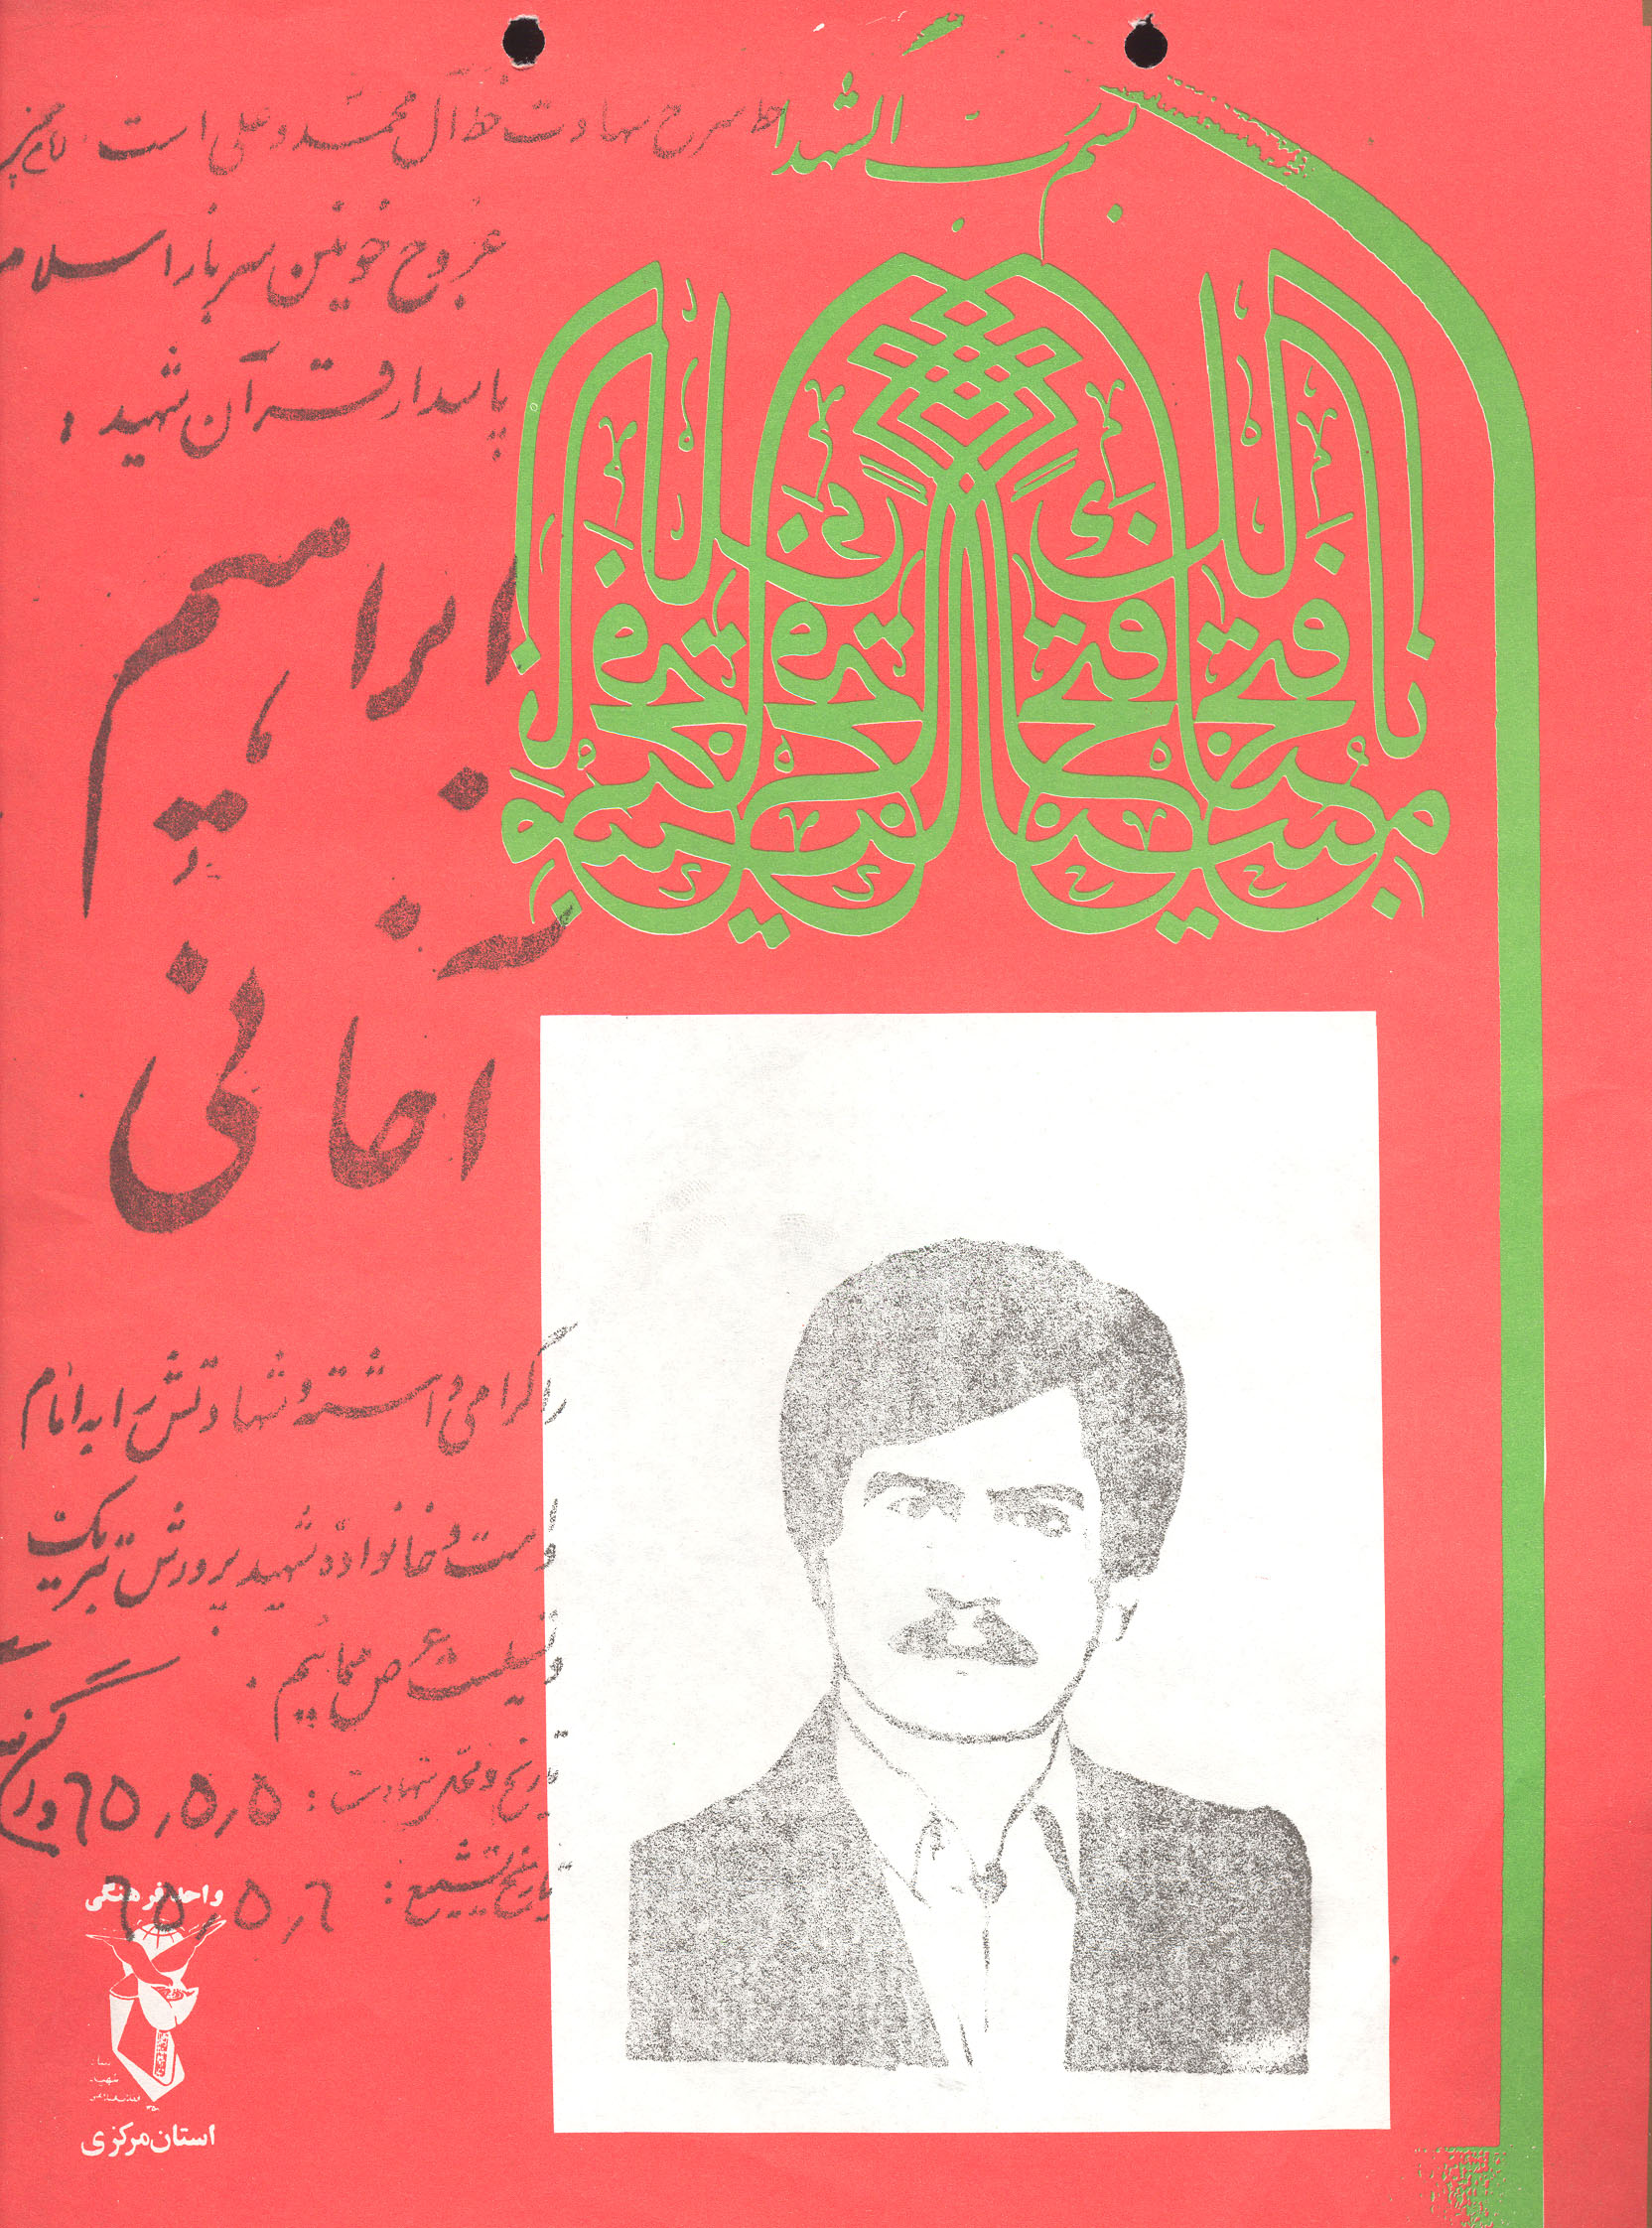 بسم رب الشهدا
خط سرخ شهادت خط آل محمد و علی است
عروج خونین سرباز اسلام
پاسدار قرآن شهید :
ابراهیم
آخانی
را گرامی داشته و شهادتش را به امام
و امت و خانواده شهید پرورش تبریک
و تسلیت عرض مینمائیم .
تاریخ و محل شهادت : ٦٥٫٥٫٥
تاریخ تشییع : ٦٥٫٥٫٦
واحد فرهنگی
بنیاد
شهید
انقلاب اسلامی
استان مرکزی
انا فتحنا لک فتحا مبینا